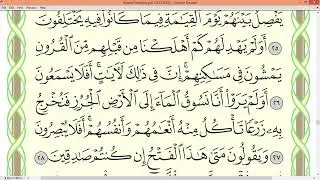 يَفْصِلُ بَيْنَهُمْ يَوْمَ الْقِيَٰمَةِ فِيمَا كَانُوا۟ فِيهِ يَخْتَلِفُونَ
٢٥ أَوَلَمْ يَهْدِ لَهُمْ كَمْ أَهْلَكْنَا مِن قَبْلِهِم مِّنَ الْقُرُونِ
يَمْشُونَ فِى مَسَٰكِنِهِمْ إِنَّ فِى ذَٰلِكَ لَءَايَٰتٍ أَفَلَا يَسْمَعُونَ
٢٦ أَوَلَمْ يَرَوْا۟ أَنَّا نَسُوقُ الْمَآءَ إِلَى الْأَرْضِ الْجُرُزِ فَنُخْرِجُ
بِهِۦ زَرْعًا تَأْكُلُ مِنْهُ أَنْعَٰمُهُمْ وَأَنفُسُهُمْ أَفَلَا يُبْصِرُونَ
٢٧ وَيَقُولُونَ مَتَىٰ هَٰذَا الْفَتْحُ إِن كُنتُمْ صَٰدِقِينَ ٢٨